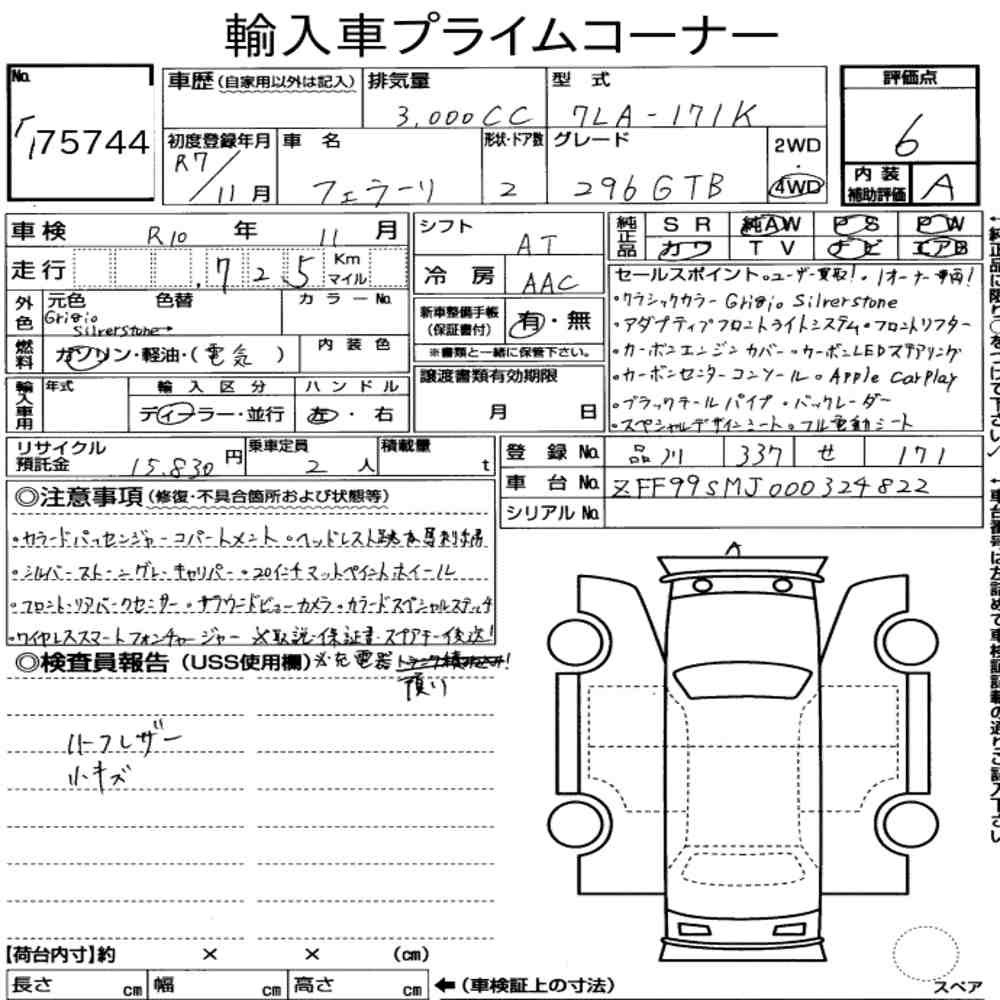 輸入車プライムコーナー
No. 75744
車歴(自家用以外は記入) 排気量 3,000CC 型式 7LA-171K 評価点 6
初度登録年月 R7/11月 車名 フェラーリ 形状・ドア数 2 グレード 296GTB 2WD・4WD
内装補助評価 A
車検 R10年 11月 シフト AT 純正品 SR 純AW PS PW
カワ TV ナビ エアB
走行 .725 Km マイル 冷房 AAC
外色 元色 色替 カラーNo.
Grigio Silverstone
新車整備手帳(保証書付) 有・無
※書類と一緒に保管下さい。
燃料 ガソリン・軽油・(電気) 内装色
譲渡書類有効期限 月 日
輸入車用 年式 輸入区分 ハンドル
ディーラー・並行 左・右
セールスポイント。ユーザー買取!。1オーナー車両!
・クラシックカラー Grigio Silverstone
・アダプティブフロントライトシステム・フロントリフター
・カーボンエンジンカバー・カーボンLEDステアリング
・カーボンセンターコンソール。Apple CarPlay
・ブラックテールパイプ・バックレーダー
・スペシャルデザインシート・フル電動シート
リサイクル預託金 15,830円 乗車定員 2人 積載量 t
登録No. 品川 337 せ 171
車台No. ZFF99SMJ000324822
シリアルNo.
◎注意事項(修復・不具合箇所および状態等)
・カラードパッセンジャーコンパートメント・ヘッドレスト跳ね馬刺繍
・シルバーストーングレーキャリパー・20インチマットペイントホイール
・フロント・リアパークセンサー・サラウンドビューカメラ・カラードスペシャルステッチ
・ワイヤレススマートフォンチャージャー ※取説・保証書・スペアキー後送!
◎検査員報告(USS使用欄)※充電器
ハーフレザー
小キズ
【荷台内寸】約 × × (cm)
長さ cm 幅 cm 高さ cm ←(車検証上の寸法)
A
スペア
←純正品に限り○をつけて下さい/
←車台番号は左詰めで車検証記載の通りご記入下さい